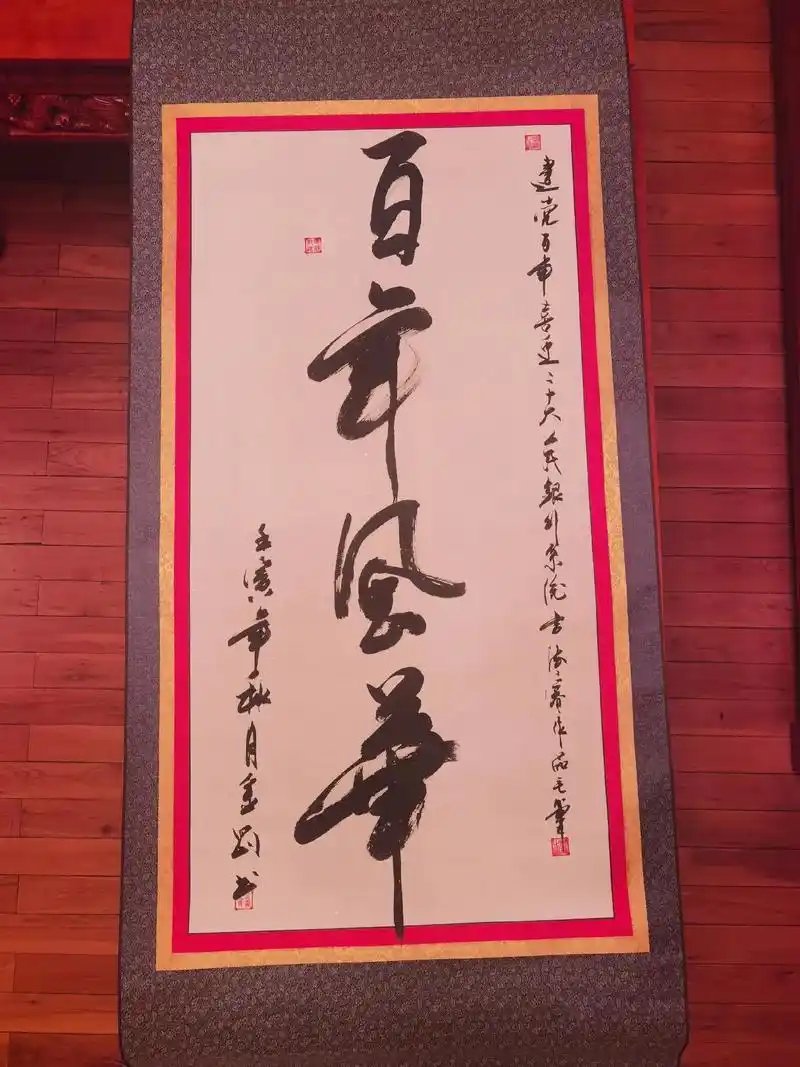 建党百年喜迎二十大人民银外京院书法家作品毛笔
百年风华
壬寅年秋月金刚书